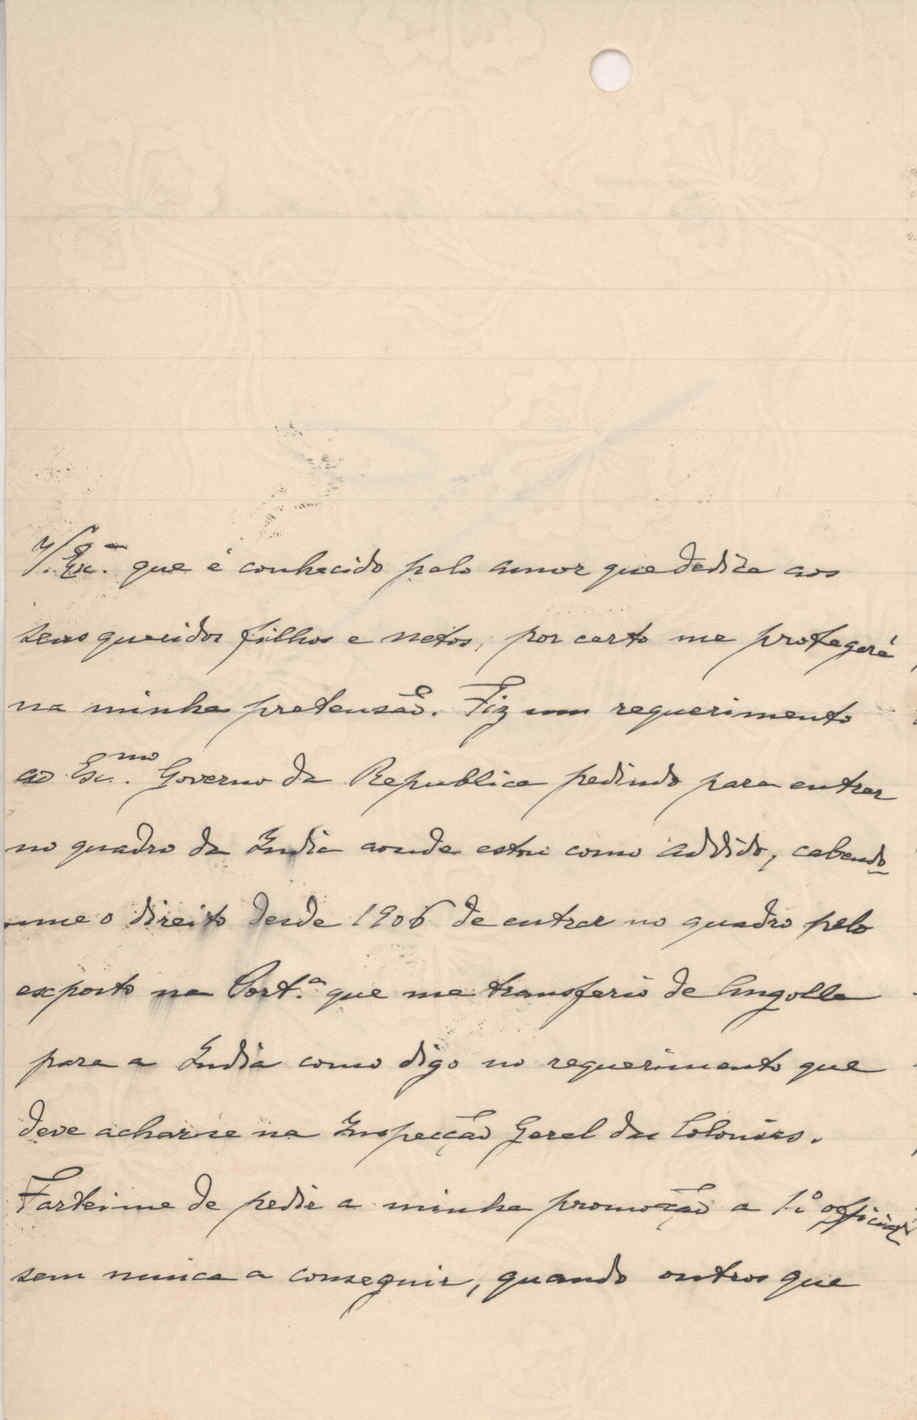 V. Exª. que é conhecido pelo amor que dedica aos
seus queridos filhos e netos, por certo me protegerá
na minha pretensão. Fiz um requerimento
ao Exmo. Governo da Republica pedindo para entrar
no quadro da India aonde estou como addido, cabendo
me o direito desde 1906 de entrar no quadro pelo
exposto na Port.ª que me transferio de Angolla
para a India como digo no requerimento que
deve achar-se na Inspecção Geral das Colonias.
Farteime de pedir a minha promoção a 1.º official
sem nunca a conseguir, quando outros que